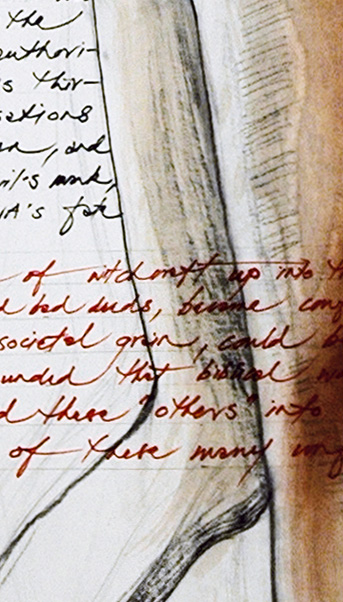 the
authori-
s thir-
sations
and
mark,
IA's fate
of witchcraft up into
bad deeds, became
societal grain, could
that biblical
d these "others" into
of these many